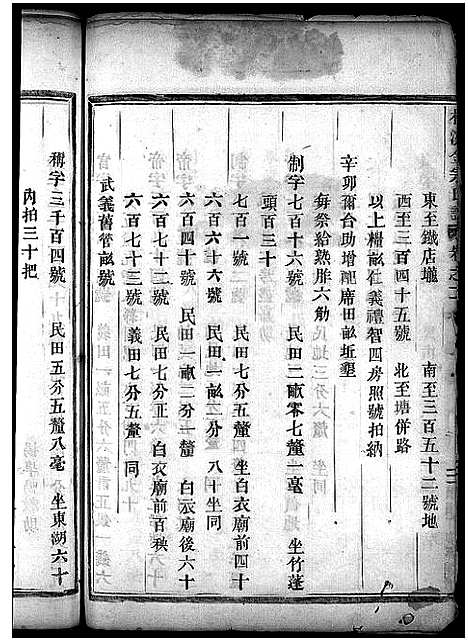 東至鐵店壠　南至三百五十二號地
西至三百四十五號　北至塘併路
以上糧畝仁義禮智四房照號拍納
每祭給熟胙六觔
辛卯爾台助增配席田畝坵墾
制字七百十六號　民田二畝零七釐一毫　坐竹蓬
頭百三十
七百一號　民田七分五釐　坐白衣廟前四十
六百六十六號　民田一畝二分　八十坐同
六百四十號　民田一畝二分一釐　白衣廟後六十
六百七十二號　民田七分正　白衣廟前百秧
六百七十三號　義田七分五釐　同
武義舊管畝號
稱字三千百四號　民田五分五釐八毫　坐東湖六十
內拍三十把